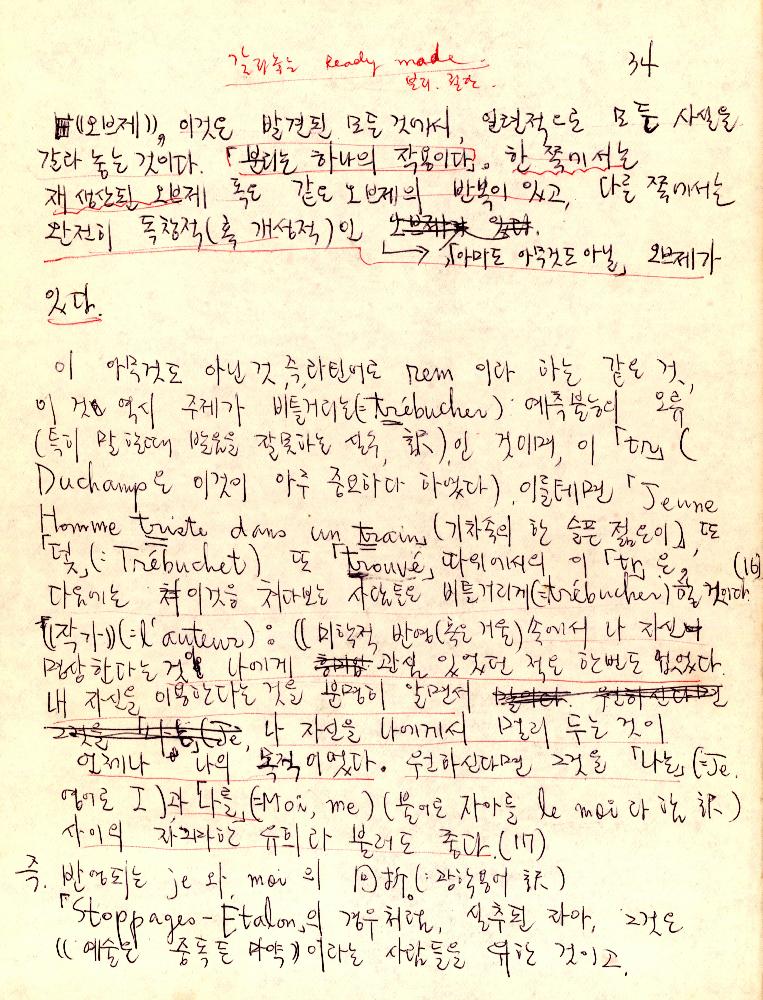 갈라놓는 Ready made.
34
분리. 절단.
《오브제》, 이것은 발견된 모든 것에서, 일련적으로 모든 사실을
갈라 놓는 것이다. 「분리는 하나의 작용이다」. 한 쪽에서는
재생산된 오브제 혹은 같은 오브제의 반복이 있고, 다른 쪽에서는
완전히 독창적(혹 개성적)인
→ 「아마도 아무것도 아닐」 오브제가
있다.
이 아무것도 아닌 것, 즉, 라틴어로 rem 이라 하는 같은 것,
이 것 역시 주제가 비틀거리는(=trébucher) 예측불능의 오류
(특히 말할때 발음을 잘못하는 실수, 訳)인 것이며, 이 「tr」(
Duchamp은 이것이 아주 중요하다 하였다) 이를테면 「Jeune
Homme triste dans un train」(기차속의 한 슬픈 젊은이), 또
「덫」(=Trébuchet) 또 「trouvé」 따위에서의 이 「tr」은, (16)
다음에는 이것을 쳐다보는 사람들은 비틀거리게(=trébucher) 할 것이다.
《작가》(=l'auteur) : 《미학적 반영(혹은 거울)속에서 나 자신
명상한다는 것 나에게 관심 있었던 적은 한번도 없었다.
내 자신을 이용한다는 것을 분명히 알면서
나 자신을 나에게서 멀리 두는 것이
언제나 나의 목적이었다. 원하신다면 그것을 「나는」(=Je.
영어로 I)과 「나를」(=Moi, me) (불어로 자아를 le moi 라 함, 訳)
사이의 자그마한 유희라 불러도 좋다.(17)
즉. 반영되는 je 와 moi 의 回折(=광학용어 訳)
「Stoppages-Etalon」의 경우처럼, 실추된 자아, 그것은
《예술은 중독된 마약》이라는 사람들을 위한 것이고.